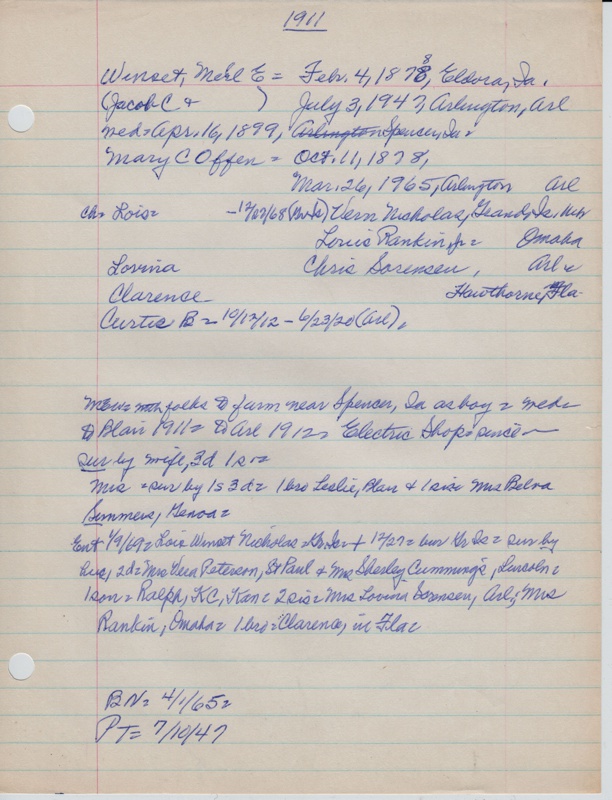 1911
Winset, Merl E = Feb. 4, 1878, Eldora, Ia.
(Jacob C + ) July 3, 1947, Arlington, Arl
med = Apr. 16, 1899, Arlington Spencer, Ia =
Mary C Offen = Oct. 11, 1878,
Mar. 26, 1965, Arlington Arl
ch = Lois = -12/27/68 (Gr Is) Vern Nicholas, Grand Is, Neb
Louis Rankin, Jr = Omaha
Lovina Chris Sorensen, Arl +
Clarence Hawthorne, Fla-
Curtis B = 10/12/12 - 6/23/20 (Arl).
Mew = with folks to farm near Spencer, Ia as boy = med =
to Blair 1911 = to Arl 1912 = Electric Shop = since -
sur by wife, 3d 1s =
Mrs = sur by 1s 3d = 1 bro Leslie, Blair + 1 sis = Mrs Belva
Simmers, Genoa =
Ent 1/9/69 = Lois Winset Nicholas = Gr Is + 12/27 = bur Gr Is = sur by
hus, 2d = Mrs Vera Peterson, St Paul + Mrs Sherley Cummings, Lincoln =
1 son = Ralph, KC, Kan = 2 sis = Mrs Lovina Sorensen, Arl; Mrs
Rankin, Omaha = 1 bro = Clarence, in Fla =
BN = 4/1/65 =
PT = 7/10/47